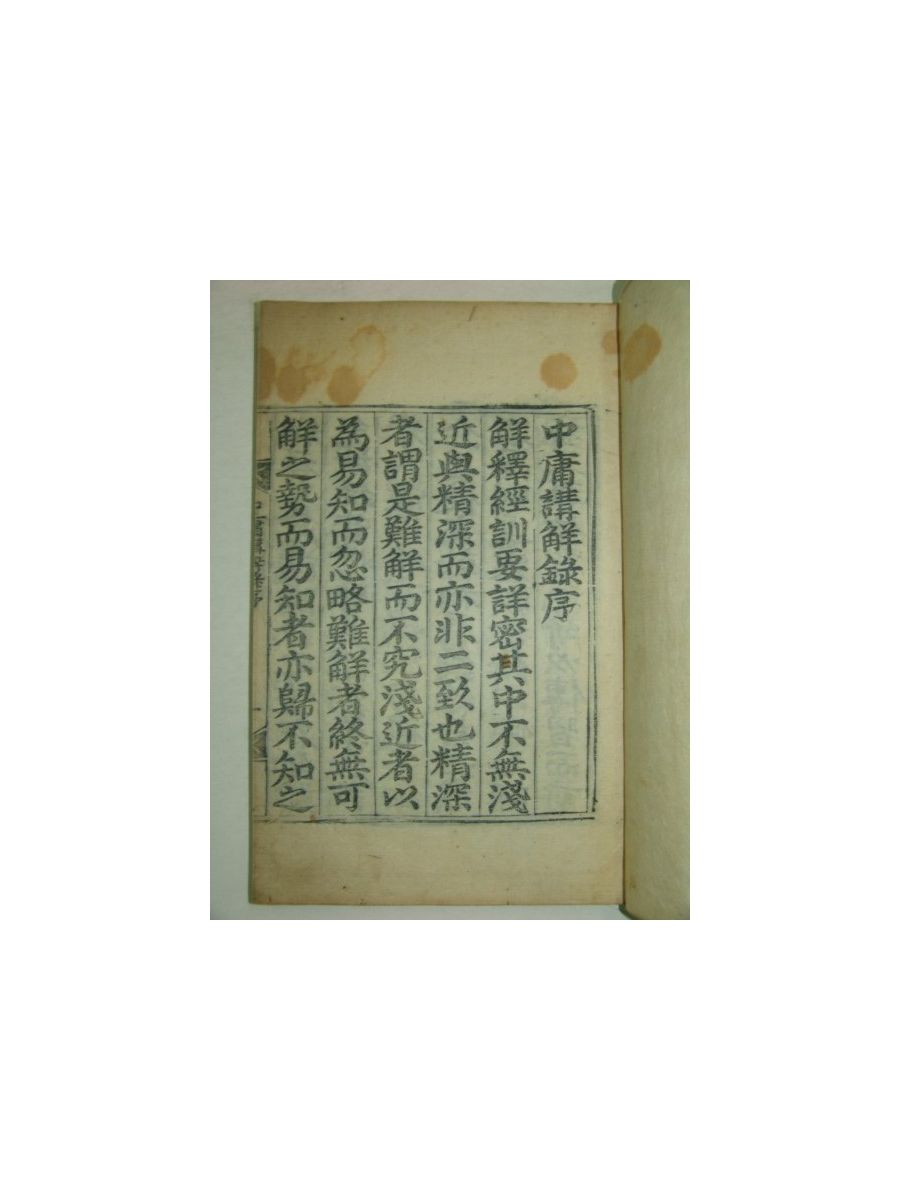 中庸講解錄序
解釋經訓要詳密其中不無淺
近與精深而亦非二致也精深
者謂是難解而不究淺近者以
為易知而忽略難解者終無可
解之勢而易知者亦歸不知之
中庸講解錄序 一